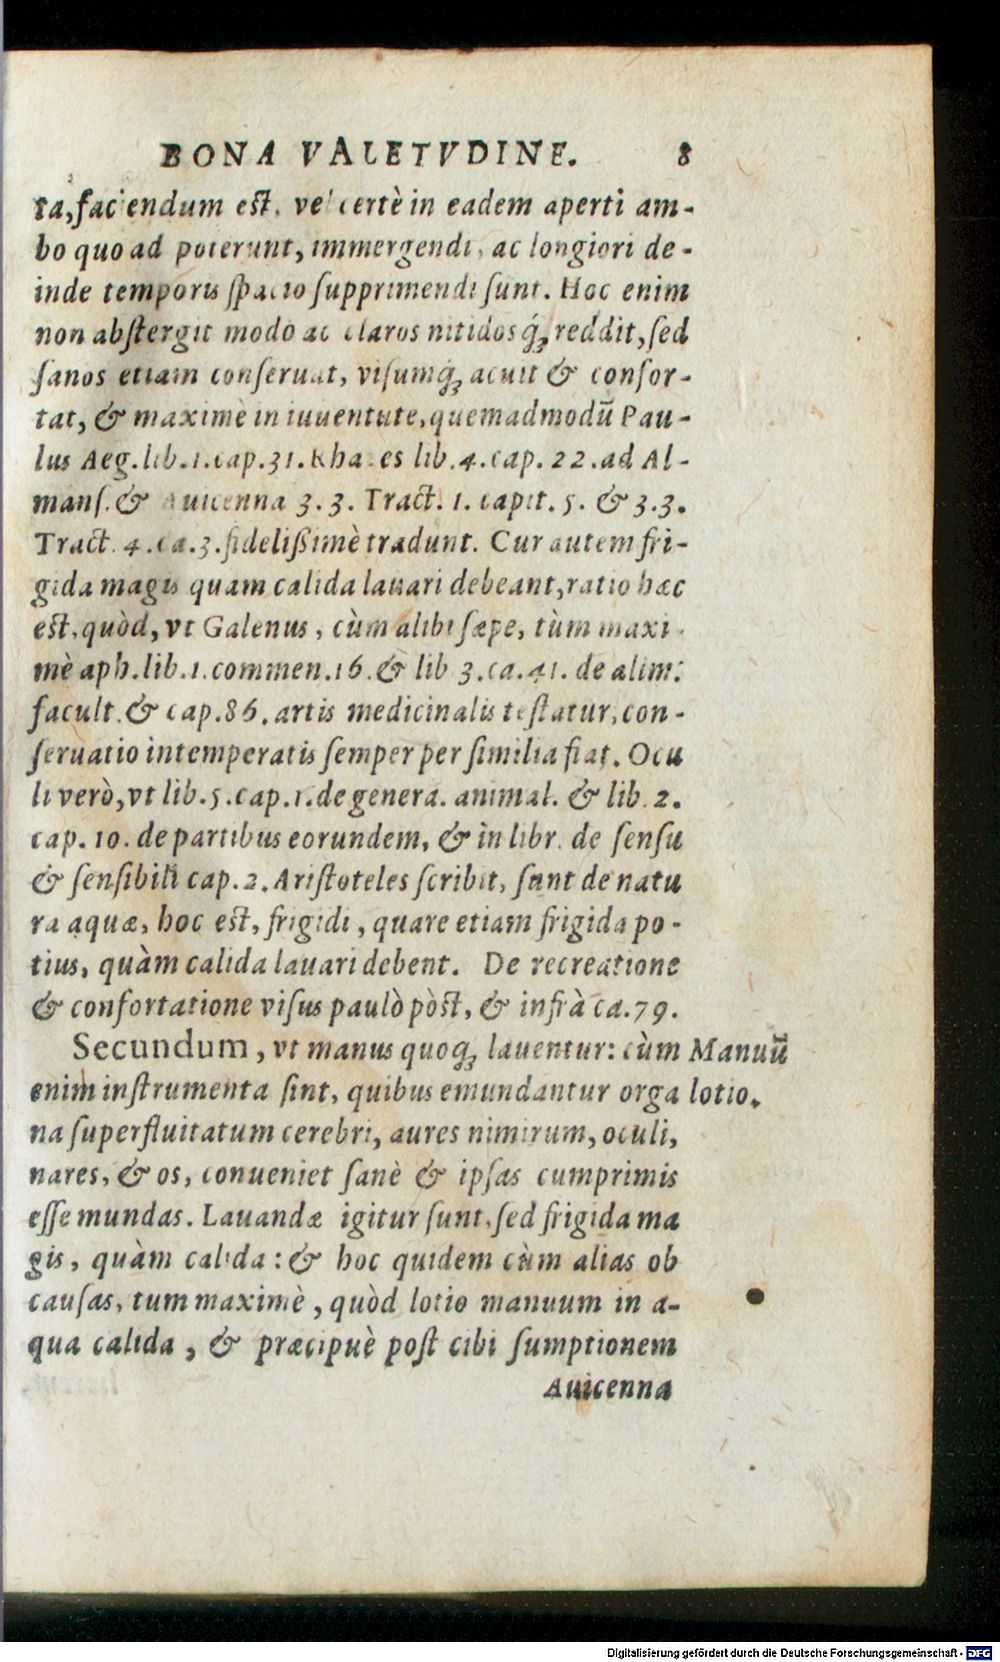 BONA VALETVDINE. 8
ta, faciendum est. vel certè in eadem aperti am-
bo quo ad poterunt, immergendi, ac longiori de-
inde temporis spacio supprimendi sunt. Hoc enim
non abstergit modo ac claros nitidosq́; reddit, sed
sanos etiam conseruat, visumq́; acuit & confor-
tat, & maximè in iuuentute, quemadmodũ Pau-
lus Aeg. lib. 1. cap. 31. Rhazes lib. 4. cap. 22. ad Al-
mans. & Auicenna 3. 3. Tract. 1. capit. 5. & 3. 3.
Tract. 4. ca. 3. fidelißimè tradunt. Cur autem fri-
gida magis quam calida lauari debeant, ratio hæc
est, quòd, vt Galenus, cùm alibi sæpe, tùm maxi-
mè aph. lib. 1. commen. 16. & lib 3. ca. 41. de alim.
facult. & cap. 86. artis medicinalis testatur, con-
seruatio intemperatis semper per similia fiat. Ocu
li verò, vt lib. 5. cap. 1. de genera. animal. & lib. 2.
cap. 10. de partibus eorundem, & in libr. de sensu
& sensibili cap. 2. Aristoteles scribit, sunt de natu
ra aquæ, hoc est, frigidi, quare etiam frigida po-
tius, quàm calida lauari debent. De recreatione
& confortatione visus paulò pòst, & infrà ca. 79.
Secundum, vt manus quoq; lauentur: cùm
Manuũ
enim instrumenta sint, quibus emundantur orga
lotio.
na superfluitatum cerebri, aures nimirum, oculi,
nares, & os, conueniet sanè & ipsas cumprimis
esse mundas. Lauandæ igitur sunt, sed frigida ma
gis, quàm calida: & hoc quidem cùm alias ob
causas, tum maximè, quòd lotio manuum in a-
qua calida, & præcipuè post cibi sumptionem
Auicenna
Digitalisierung gefördert durch die Deutsche Forschungsgemeinschaft - DFG